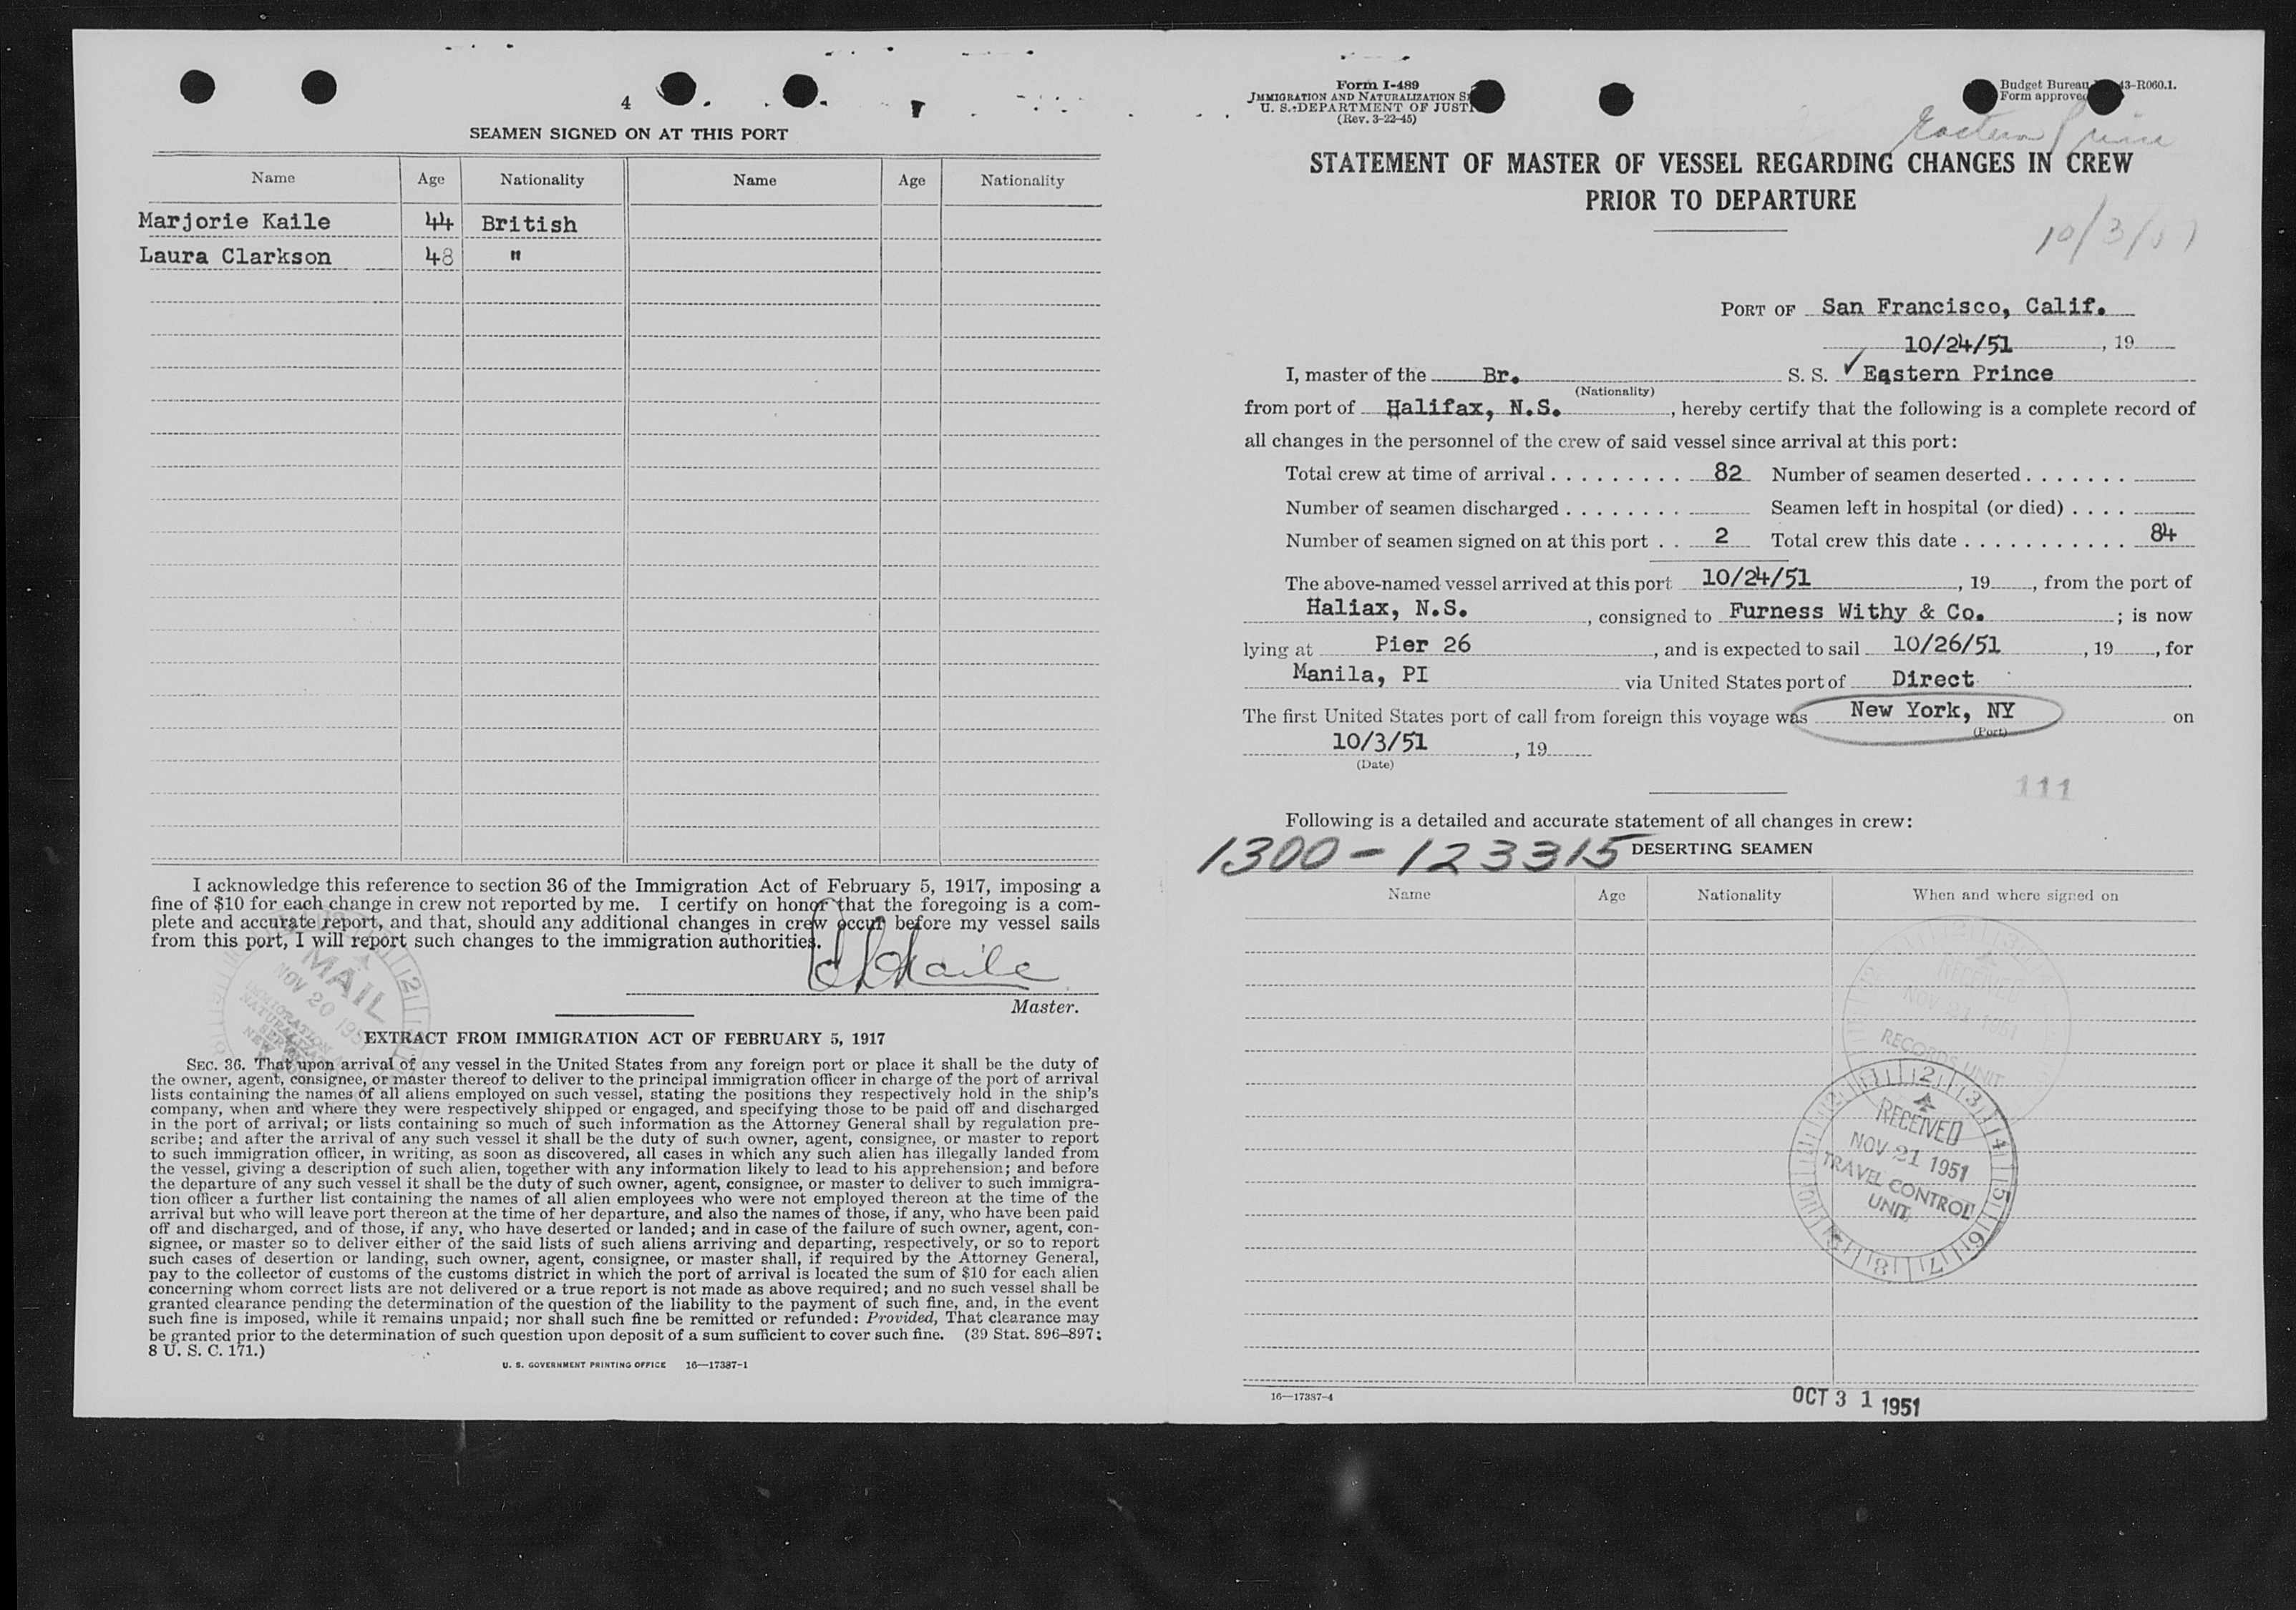 4
SEAMEN SIGNED ON AT THIS PORT
Name Age Nationality Name Age Nationality
Marjorie Kaile 44 British
Laura Clarkson 48 "
I acknowledge this reference to section 36 of the Immigration Act of February 5, 1917, imposing a
fine of $10 for each change in crew not reported by me. I certify on honor that the foregoing is a com-
plete and accurate report, and that, should any additional changes in crew occur before my vessel sails
from this port, I will report such changes to the immigration authorities.
Kaile
Master.
MAIL
NOV 20 195
EXTRACT FROM IMMIGRATION ACT OF FEBRUARY 5, 1917
SEC. 36. That upon arrival of any vessel in the United States from any foreign port or place it shall be the duty of
the owner, agent, consignee, or master thereof to deliver to the principal immigration officer in charge of the port of arrival
lists containing the names of all aliens employed on such vessel, stating the positions they respectively hold in the ship's
company, when and where they were respectively shipped or engaged, and specifying those to be paid off and discharged
in the port of arrival; or lists containing so much of such information as the Attorney General shall by regulation pre-
scribe; and after the arrival of any such vessel it shall be the duty of such owner, agent, consignee, or master to report
to such immigration officer, in writing, as soon as discovered, all cases in which any such alien has illegally landed from
the vessel, giving a description of such alien, together with any information likely to lead to his apprehension; and before
the departure of any such vessel it shall be the duty of such owner, agent, consignee, or master to deliver to such immigra-
tion officer a further list containing the names of all alien employees who were not employed thereon at the time of the
arrival but who will leave port thereon at the time of her departure, and also the names of those, if any, who have been paid
off and discharged, and of those, if any, who have deserted or landed; and in case of the failure of such owner, agent, con-
signee, or master so to deliver either of the said lists of such aliens arriving and departing, respectively, or so to report
such cases of desertion or landing, such owner, agent, consignee, or master shall, if required by the Attorney General,
pay to the collector of customs of the customs district in which the port of arrival is located the sum of $10 for each alien
concerning whom correct lists are not delivered or a true report is not made as above required; and no such vessel shall be
granted clearance pending the determination of the question of the liability to the payment of such fine, and, in the event
such fine is imposed, while it remains unpaid; nor shall such fine be remitted or refunded: Provided, That clearance may
be granted prior to the determination of such question upon deposit of a sum sufficient to cover such fine. (39 Stat. 896–897;
8 U. S. C. 171.)
U. S. GOVERNMENT PRINTING OFFICE 16—17387-1
Form I-489
IMMIGRATION AND NATURALIZATION
U. S. DEPARTMENT OF JUST
(Rev. 3-22-45)
Budget Bureau 43-R060.1.
Form approved
Eastern Prince
STATEMENT OF MASTER OF VESSEL REGARDING CHANGES IN CREW
PRIOR TO DEPARTURE
10/3/51
PORT OF San Francisco, Calif.
10/24/51, 19
I, master of the Br. S. S. ✓ Eastern Prince
(Nationality)
from port of Halifax, N.S., hereby certify that the following is a complete record of
all changes in the personnel of the crew of said vessel since arrival at this port:
Total crew at time of arrival . . . . . . . . . 82 Number of seamen deserted . . . . . . .
Number of seamen discharged . . . . . . . . Seamen left in hospital (or died) . . . .
Number of seamen signed on at this port . . 2 Total crew this date . . . . . . . . . . . 84
The above-named vessel arrived at this port 10/24/51, 19, from the port of
Haliax, N.S., consigned to Furness Withy & Co.; is now
lying at Pier 26, and is expected to sail 10/26/51, 19, for
Manila, PI via United States port of Direct
The first United States port of call from foreign this voyage was New York, NY on
(Port)
10/3/51, 19
(Date)
111
Following is a detailed and accurate statement of all changes in crew:
1300-123315 DESERTING SEAMEN
Name Age Nationality When and where signed on
RECEIVED
NOV 21 1951
RECORDS UNIT
RECEIVED
NOV 21 1951
TRAVEL CONTROL
UNIT
16—17387-4
OCT 31 1951